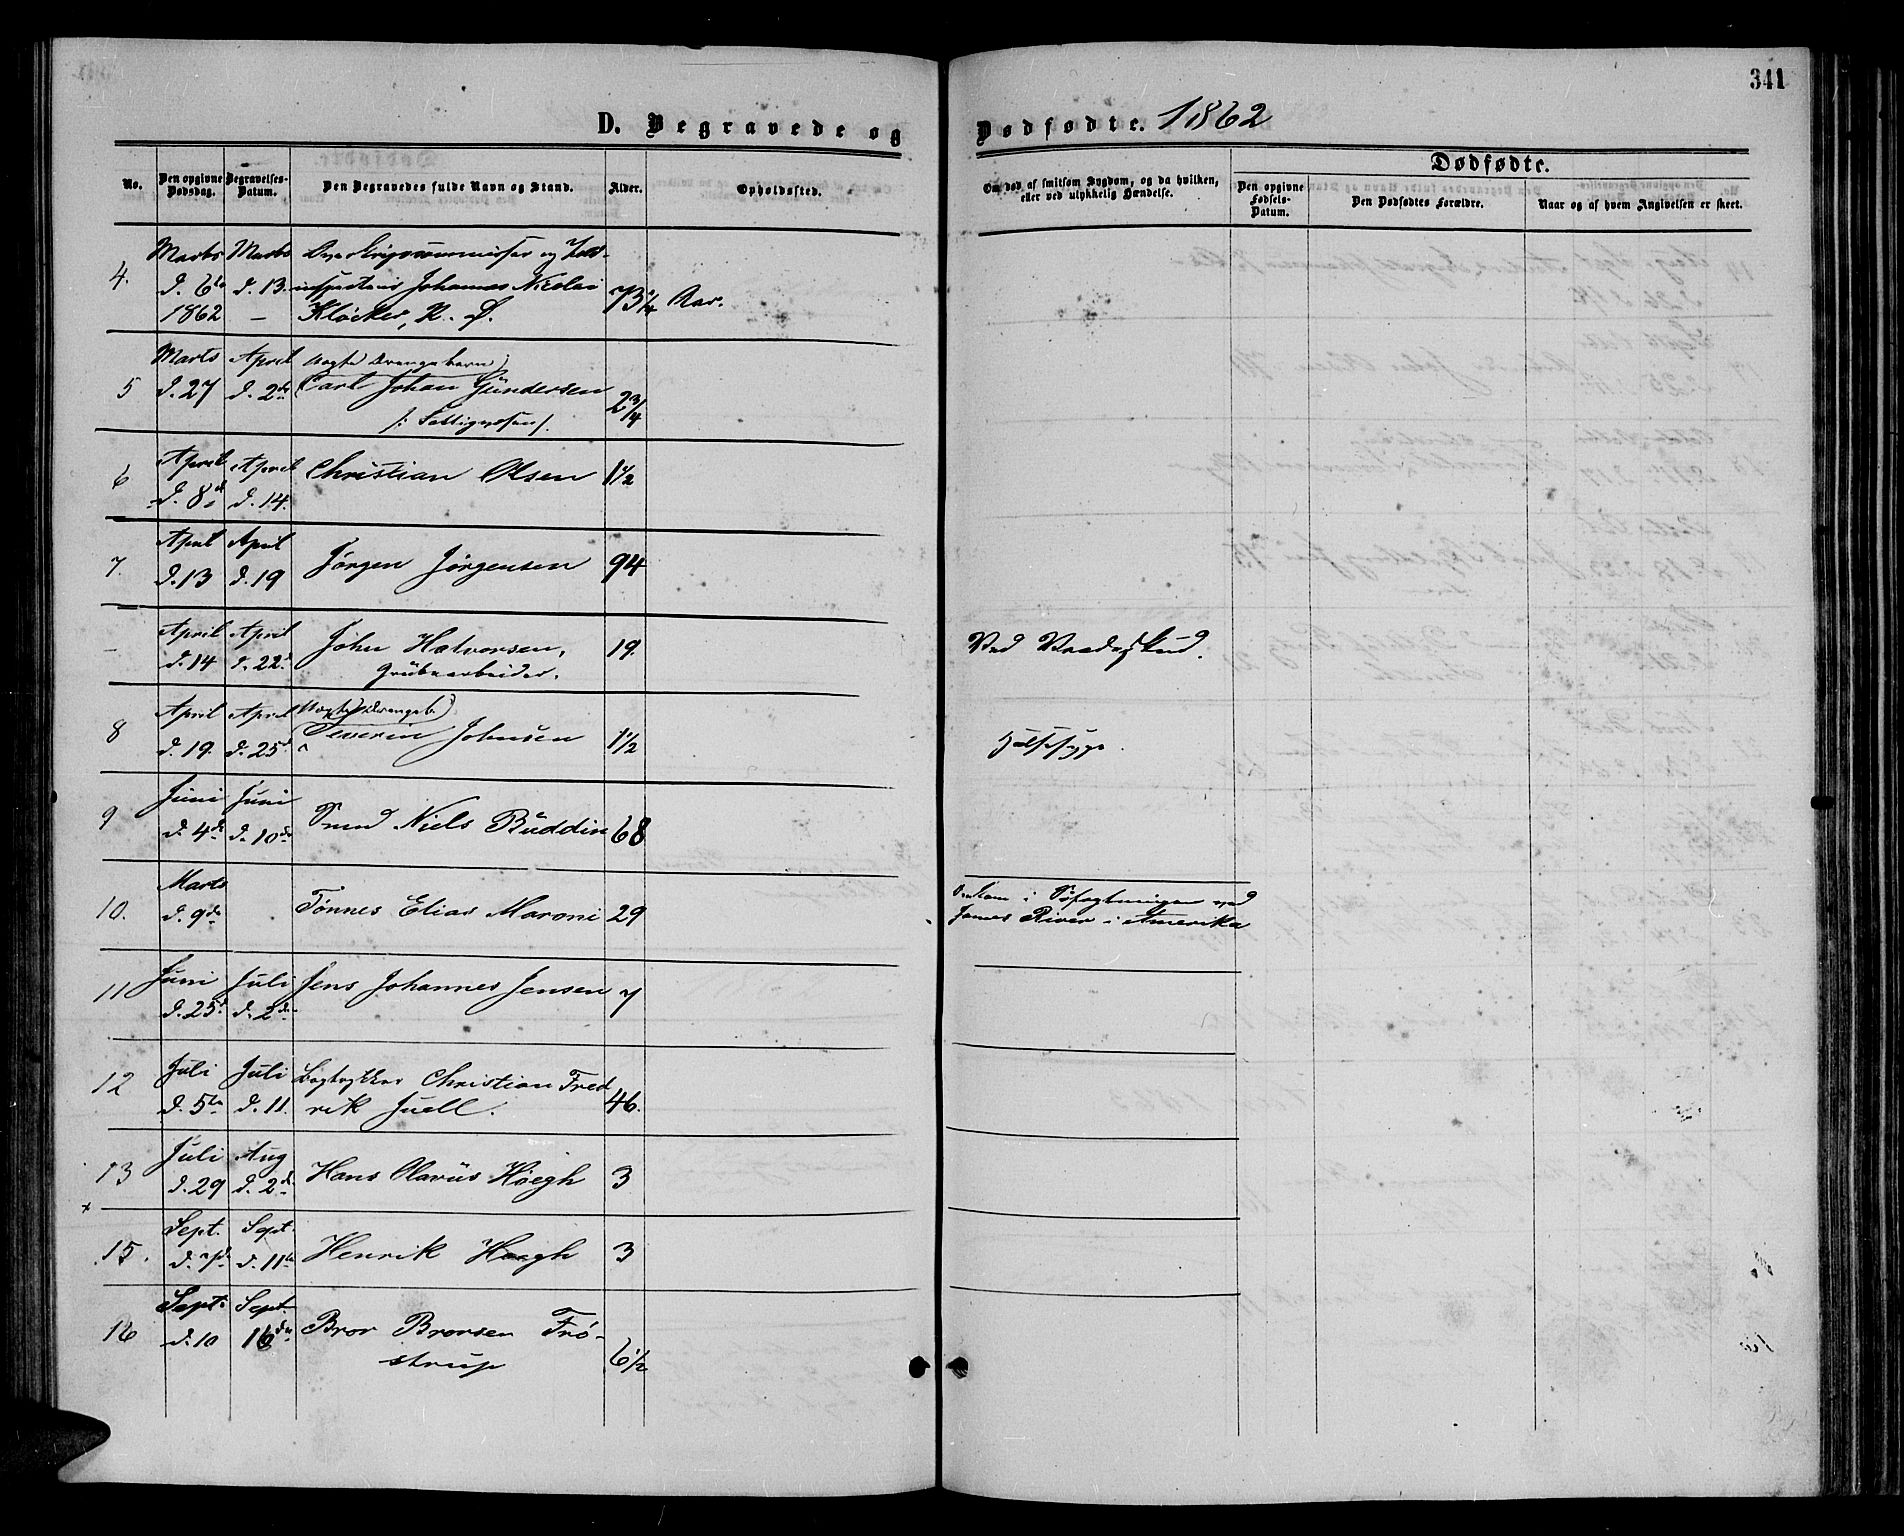 341
D. Begravede og Dødfødte. 1862
No.
Den opgivne Dødsdag.
Begravelses-Datum.
Den Begravedes fulde Navn og Stand.
Alder.
Opholdssted.
Om død af smitsom Sygdom, og da hvilken, eller ved ulykkelig Hændelse.
Dødfødte.
Den opgivne Fødsels-Datum.
Den Dødfødtes Forældre.
Naar og af hvem Angivelsen er skeet.
4.
Marts d. 6te 1862
Marts d. 13. –
og Told-
Johannes Nicolai
Kløcker, R. O.
73 1/4 Aar.
5
Marts d. 27
April d. 2de
Uægte Drengebarn
Carl Johan Gündersen
2 3/4
6
April d. 8de
April d. 14.
Christian Olsen
1 1/2
7.
April d. 13
April d. 19
Jørgen Jørgensen
94
–
April d. 14
April d. 22
John Halvorsen,
Grübearbeider.
19.
Ved Vaadeskud.
8
April d. 19.
April d. 25de
Uægte Drengeb.
Severin Johnsen
1 1/2
Halssyge.
9
Juni d. 4de
Juni d. 10de
Smed Niels Büddin
68
10.
Marts d. 9de
Tönnes Elias Maroni
29
Omkom i Søfægtningen ved
James River i Amerika
11
Juni d. 25
Juli d. 2de
Jens Johannes Jensen
7
12
Juli d. 5te
Juli d. 11.
Bogtrykker Christian Fred
rik Juell.
46.
13
Juli d. 29
Aug d. 2de
Hans Olavüs Høegh
3
15.
Sept. d. 7de
Sept. d. 11te
Henrik Høegh
3
16
Sept. d. 10
Sept. 16de
Bror Brorsen Frö-
strup
6 1/2